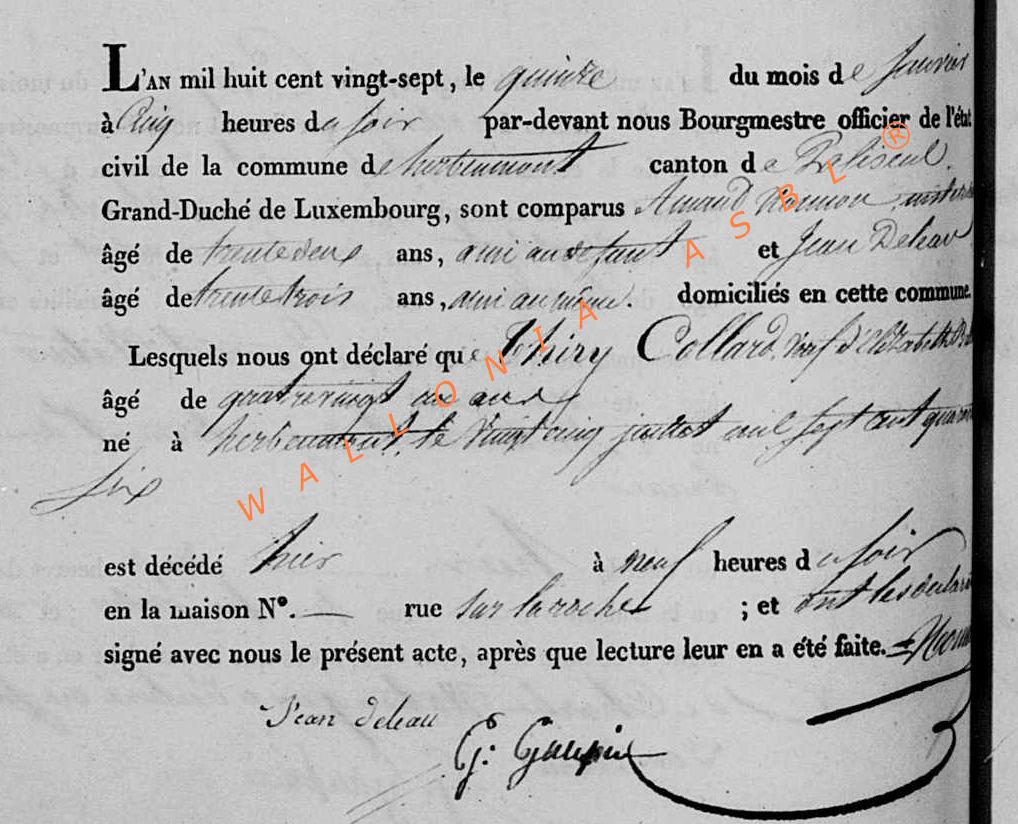 L'AN mil huit cent vingt-sept, le quinze du mois de Janvier
à Cinq heures du soir par-devant nous Bourgmestre officier de l'état
civil de la commune de herbeumont canton de Paliseul.
Grand-Duché de Luxembourg, sont comparus Amand
âgé de trente deux ans, ami au defunt et Jean Deleau
âgé de trente trois ans, ami au même. domiciliés en cette commune.
Lesquels nous ont déclaré que Thiry Collard, veuf d'Elizabeth
âgé de quatre vingt ans
né à herbeumont, le vingt cinq juillet mil sept cent quarante
six
est décédé hier à neuf heures du soir
en la maison N°. — rue sur la roche ; et ont les declarants
signé avec nous le présent acte, après que lecture leur en a été faite. =
Jean deleau
G:
WALLONIA ASBL ®